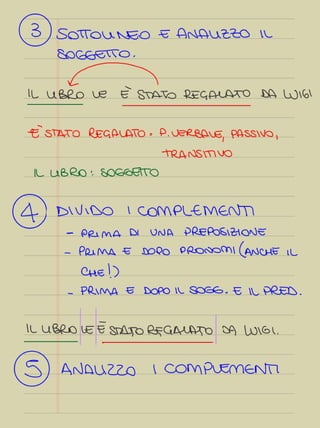 3 SOTTOLINEO E ANALIZZO IL
SOGGETTO.
IL LIBRO LE È STATO REGALATO DA LUIGI
È STATO REGALATO. P. VERBALE, PASSIVO,
TRANSITIVO
IL LIBRO: SOGGETTO
4 DIVIDO I COMPLEMENTI
- PRIMA DI UNA PREPOSIZIONE
- PRIMA E DOPO PRONOMI (ANCHE IL
CHE!)
- PRIMA E DOPO IL SOGG. E IL PRED.
IL LIBRO LE È STATO REGALATO DA LUIGI.
5 ANALIZZO I COMPLEMENTI